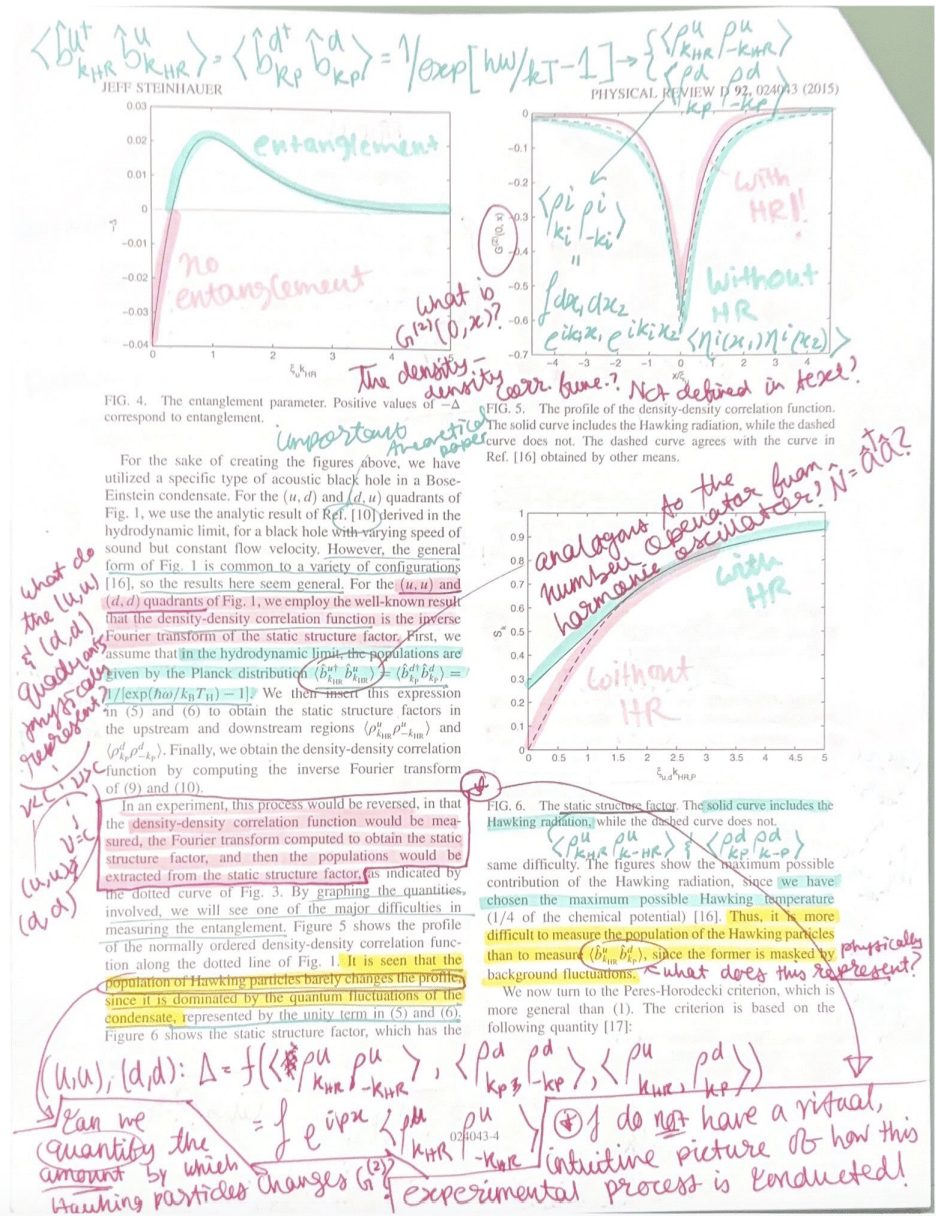 ⟨b̂^{u†}_{k_HR} b̂^u_{k_HR}⟩ = ⟨b̂^{d†}_{kp} b̂^d_{kp}⟩ = 1/exp[ħω/kT−1] → { ⟨ρ^u_{k_HR} ρ^u_{-k_HR}⟩
⟨ρ^d_{kp} ρ^d_{-kp}⟩
JEFF STEINHAUER
PHYSICAL REVIEW D 92, 024043 (2015)
0.03
0.02
0.01
0
−0.01
−0.02
−0.03
−0.04
−Δ
0 1 2 3 4 5
ξ_u k_HR
entanglement
no
entanglement
0
−0.1
−0.2
−0.3
−0.4
−0.5
−0.6
−0.7
G^(2)(0, x)
−4 −2 0 2 4
with
HR!!
without
HR
⟨ρ^i_{ki} ρ^i_{-ki}⟩
=
∫dx₁dx₂
e^{ikix₁} e^{ikix₂} ⟨η^i(x₁)η^i(x₂)⟩
what is
G^(2)(0,x)?
The density-
density corr. func.? Not defined in text?
FIG. 4. The entanglement parameter. Positive values of −Δ
correspond to entanglement.
FIG. 5. The profile of the density-density correlation function.
The solid curve includes the Hawking radiation, while the dashed
curve does not. The dashed curve agrees with the curve in
Ref. [16] obtained by other means.
important
theoretical
paper
For the sake of creating the figures above, we have
utilized a specific type of acoustic black hole in a Bose-
Einstein condensate. For the (u, d) and (d, u) quadrants of
Fig. 1, we use the analytic result of Ref. [10] derived in the
hydrodynamic limit, for a black hole with varying speed of
sound but constant flow velocity. However, the general
form of Fig. 1 is common to a variety of configurations
[16], so the results here seem general. For the (u, u) and
(d, d) quadrants of Fig. 1, we employ the well-known result
that the density-density correlation function is the inverse
Fourier transform of the static structure factor. First, we
assume that in the hydrodynamic limit, the populations are
given by the Planck distribution ⟨b̂^{u†}_{k_HR} b̂^u_{k_HR}⟩ = ⟨b̂^{d†}_{k_P} b̂^d_{k_P}⟩ =
1/[exp(ħω/k_B T_H) − 1]. We then insert this expression
in (5) and (6) to obtain the static structure factors in
the upstream and downstream regions ⟨ρ^u_{k_HR} ρ^u_{−k_HR}⟩ and
⟨ρ^d_{k_P} ρ^d_{−k_P}⟩. Finally, we obtain the density-density correlation
function by computing the inverse Fourier transform
of (9) and (10).
In an experiment, this process would be reversed, in that
the density-density correlation function would be mea-
sured, the Fourier transform computed to obtain the static
structure factor, and then the populations would be
extracted from the static structure factor, as indicated by
the dotted curve of Fig. 3. By graphing the quantities,
involved, we will see one of the major difficulties in
measuring the entanglement. Figure 5 shows the profile
of the normally ordered density-density correlation func-
tion along the dotted line of Fig. 1. It is seen that the
population of Hawking particles barely changes the profile,
since it is dominated by the quantum fluctuations of the
condensate, represented by the unity term in (5) and (6).
Figure 6 shows the static structure factor, which has the
what do
the (u,u)
& (d,d)
quadrants
physically
represent?
v<c, v>c
v=c
(u,u)
(d,d)
analogous to the
number operator from
harmonic oscillator? N̂ = â†â?
0.9
0.8
0.7
0.6
0.5
0.4
0.3
0.2
0.1
0
S_k
0 0.5 1 1.5 2 2.5 3 3.5 4 4.5 5
ξ_{u,d} k_{HR,P}
with
HR
without
HR
FIG. 6. The static structure factor. The solid curve includes the
Hawking radiation, while the dashed curve does not.
⟨ρ^u_{k_HR} ρ^u_{k-HR}⟩ & ⟨ρ^d_{kp} ρ^d_{k-p}⟩
same difficulty. The figures show the maximum possible
contribution of the Hawking radiation, since we have
chosen the maximum possible Hawking temperature
(1/4 of the chemical potential) [16]. Thus, it is more
difficult to measure the population of the Hawking particles
than to measure ⟨b̂^u_{k_HR} b̂^d_{k_P}⟩, since the former is masked by
background fluctuations.
physically
what does this represent?
We now turn to the Peres-Horodecki criterion, which is
more general than (1). The criterion is based on the
following quantity [17]:
(u,u), (d,d): Δ = f(⟨ρ^u_{k_HR} ρ^u_{-k_HR}⟩, ⟨ρ^d_{kp} ρ^d_{-kp}⟩, ⟨ρ^u_{k_HR}, ρ^d_{kp}⟩)
= ∫ e^{ipx} ⟨ρ^u_{k_HR} ρ^u_{-k_HR}⟩
024043-4
Can we
quantify the
amount by which
Hawking particles changes G^(2)?
I do not have a visual,
intuitive picture of how this
experimental process is conducted!